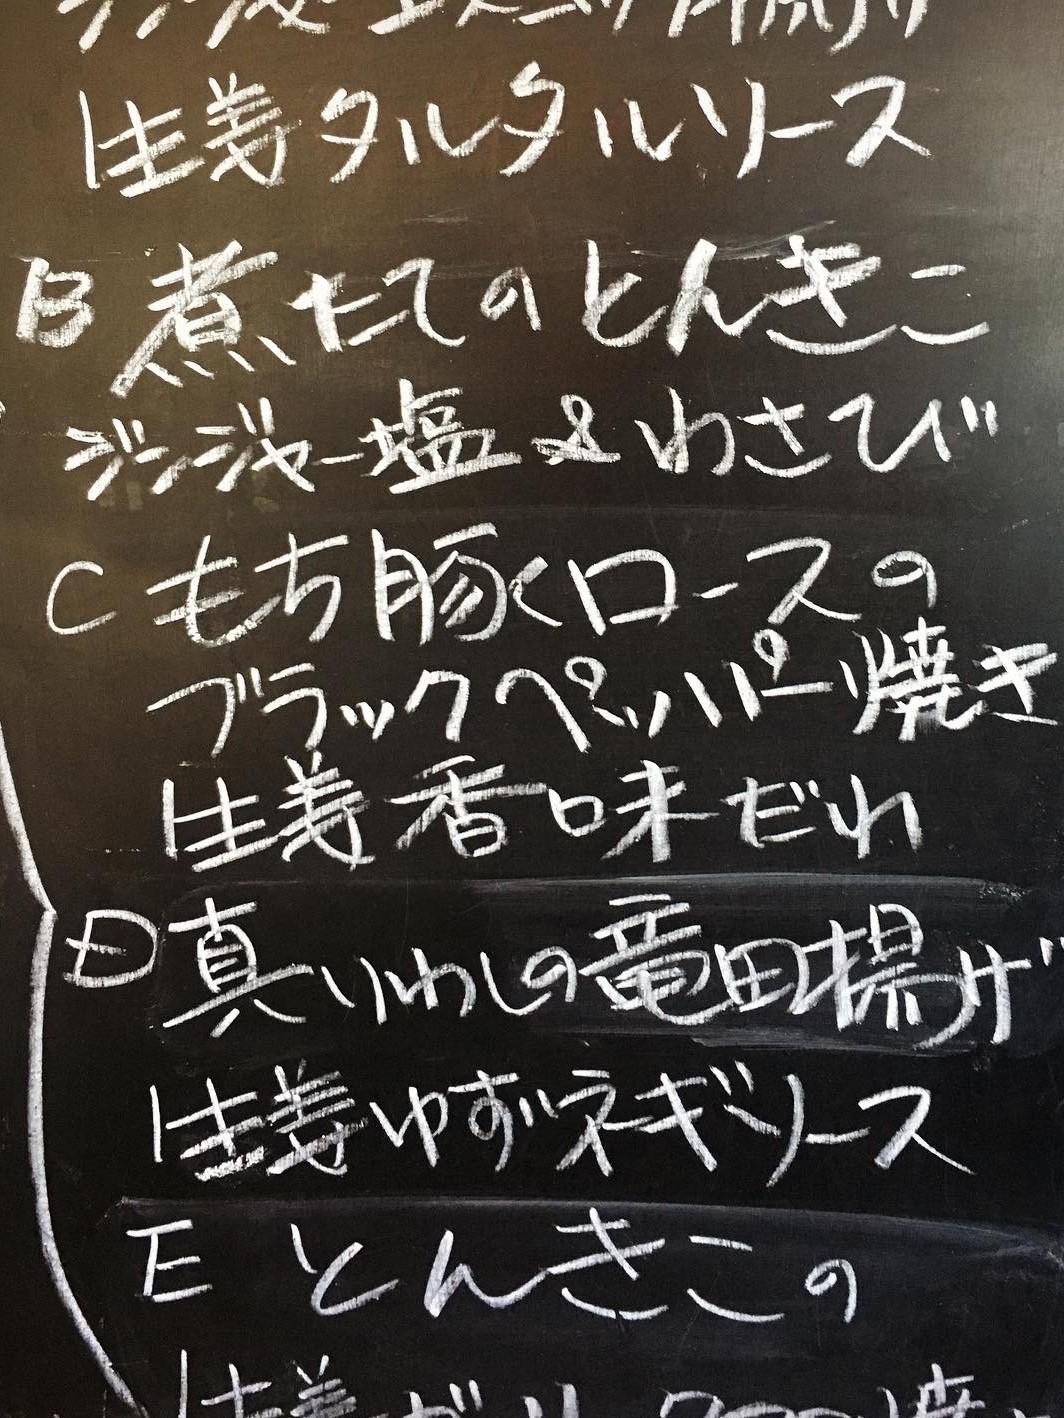 生姜タルタルソース
B 煮たてのとんきこ
ジンジャー塩&わさび
C もち豚くロースの
ブラックペッパー焼き
生姜香味だれ
D 真いわしの竜田揚げ
生姜ゆずネギソース
E とんきこの